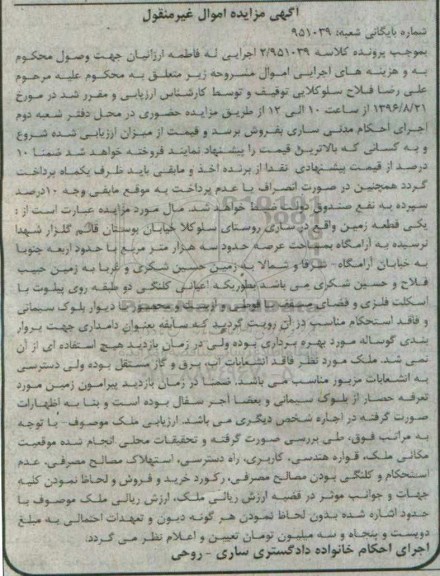 آگهی مزایده اموال غیرمنقول
شماره بایگانی شعبه: ۹۵۱۰۳۹
بموجب پرونده کلاسه ۲/۹۵۱۰۳۹ اجرایی له فاطمه ارزانیان جهت وصول محکوم
به و هزینه های اجرایی اموال مشروحه زیر متعلق به محکوم علیه مرحوم
علی رضا فلاح سلوکلایی توقیف و توسط کارشناس ارزیابی و مقرر شد در مورخ
۱۳۹۶/۸/۲۱ از ساعت ۱۰ الی ۱۲ از طریق مزایده حضوری در محل دفتر شعبه دوم
اجرای احکام مدنی ساری بفروش برسد و قیمت از میزان ارزیابی شده شروع
و به کسانی که بالاترین قیمت را پیشنهاد نمایند فروخته خواهد شد ضمنا ۱۰
درصد از قیمت پیشنهادی نقدا از برنده اخذ و مابقی باید ظرف یکماه پرداخت
گردد همچنین در صورت انصراف یا عدم پرداخت به موقع مابقی وجه ۱۰درصد
سپرده به نفع صندوق دولت ضبط خواهد شد. مال مورد مزایده عبارت است از :
یکی قطعه زمین واقع در ساری روستای سلوکلا خیابان بوستان قائم گلزار شهدا
نرسیده به آرامگاه بمساحت عرصه حدود سه هزار متر مربع با حدود اربعه جنوبا
به خیابان آرامگاه - شرقا و شمالا به زمین حسین شکری و غربا به زمین حبیب
فلاح و حسین شکری می باشد بطوریکه اعیانی کلنگی دو طبقه روی پیلوت با
اسکلت فلزی و فضای مسقف قوطی و آزبست و محصور با دیوار بلوک سیمانی
و فاقد استحکام مناسب در آن رویت گردید که سابقه بعنوان دامداری جهت پروار
بندی گوساله مورد بهره برداری بوده ولی در زمان بازدید هیچ استفاده ای از آن
نمی شد. ملک مورد نظر فاقد انشعابات آب، برق و گاز مستقل بوده ولی دسترسی
به انشعابات مزبور مناسب می باشد. ضمنا در زمان بازدید پیرامون زمین مورد
تعرفه حصار از بلوک سیمانی و بعضا آجر سفال بوده است و بنا به اظهارات
صورت گرفته در اجاره شخص دیگری می باشد. ارزیابی ملک موصوف با توجه
به مراتب فوق، طی بررسی صورت گرفته و تحقیقات محلی انجام شده موقعیت
مکانی ملک، قواره هندسی، کاربری، راه دسترسی، استهلاک مصالح مصرفی، عدم
استحکام و کلنگی بودن مصالح مصرفی، رکورد خرید و فروش و لحاظ نمودن کلیه
جهات و جوانب موثر در قضیه ارزش ریالی ملک، ارزش ریالی ملک موصوف با
حدود اشاره شده بدون لحاظ نمودن هر گونه دیون و تعهدات احتمالی به مبلغ
دویست و پنجاه و سه میلیون تومان تعیین و اعلام نظر می گردد.
اجرای احکام خانواده دادگستری ساری - روحی